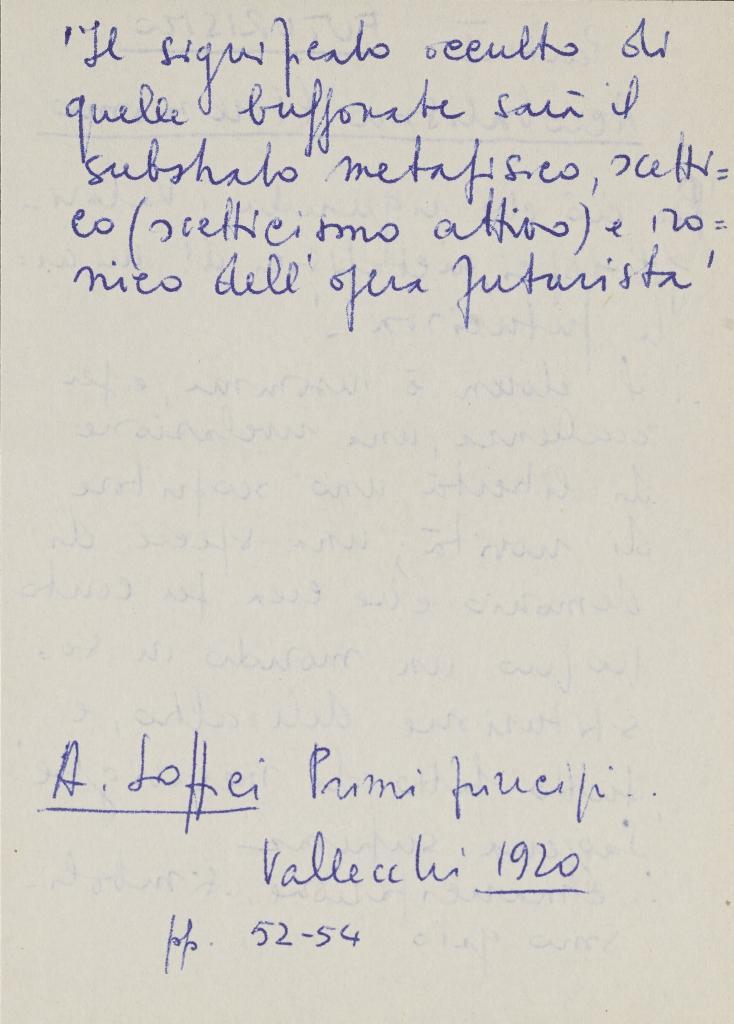 'Il significato occulto di
quelle buffonate sarà il
substrato metafisico, scetti=
co (scetticismo attivo) e iro=
nico dell'opera futurista'
A. Soffici Primi principi.
Vallecchi 1920
pp. 52-54